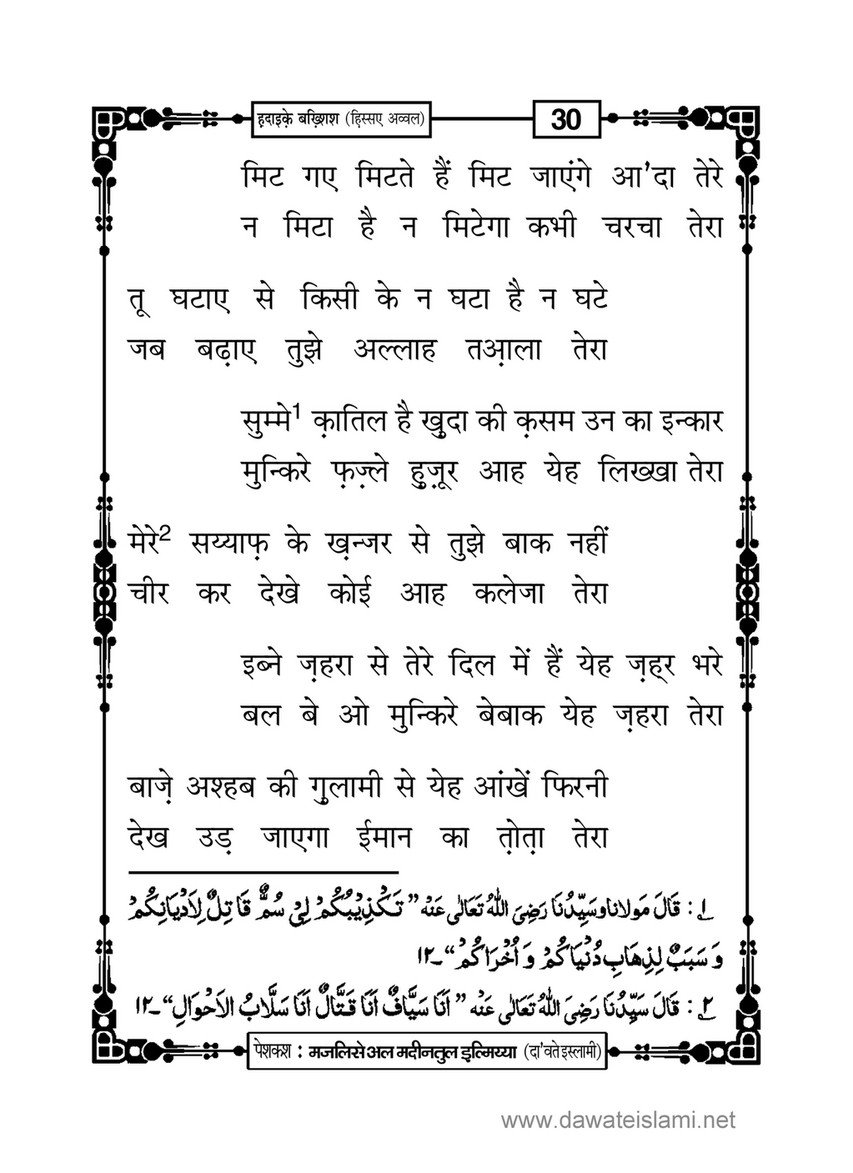 ह़दाइक़े बख़्शिश (ह़िस्सए अव्वल)
30
मिट गए मिटते हैं मिट जाएंगे आ'दा तेरे
न मिटा है न मिटेगा कभी चरचा तेरा
तू घटाए से किसी के न घटा है न घटे
जब बढ़ाए तुझे अल्लाह तआ़ला तेरा
सुम्मे1 क़ातिल है ख़ुदा की क़सम उन का इन्कार
मुन्किरे फ़ज़्ले हुज़ूर आह येह लिख्खा तेरा
मेरे2 सय्याफ़ के ख़न्जर से तुझे बाक नहीं
चीर कर देखे कोई आह कलेजा तेरा
इब्ने ज़हरा से तेरे दिल में हैं येह ज़ह्र भरे
बल बे ओ मुन्किरे बेबाक येह ज़हरा तेरा
बाज़े अश्हब की ग़ुलामी से येह आंखें फिरनी
देख उड़ जाएगा ईमान का त़ोत़ा तेरा
١ : قَالَ مَولانا وسَیِّدُنَا رَضِیَ اللّٰہُ تَعَالٰی عَنْہ ”تَکْذِیْبُکُمْ لِیْ سُمٌّ قَاتِلٌ لِاَدْیَانِکُمْ
وَ سَبَبٌ لِذِھَابِ دُنْیَاکُمْ وَ اُخْرَاکُمْ“۔١٢
٢ : قَالَ سَیِّدُنَا رَضِیَ اللّٰہُ تَعَالٰی عَنْہ ”اَنَا سَیَّافٌ اَنَا قَتَّالٌ اَنَا سَلَّابُ الْاَحْوَالِ“۔١٢
पेशकश : मजलिसे अल मदीनतुल इल्मिय्या (दा'वते इस्लामी)
www.dawateislami.net